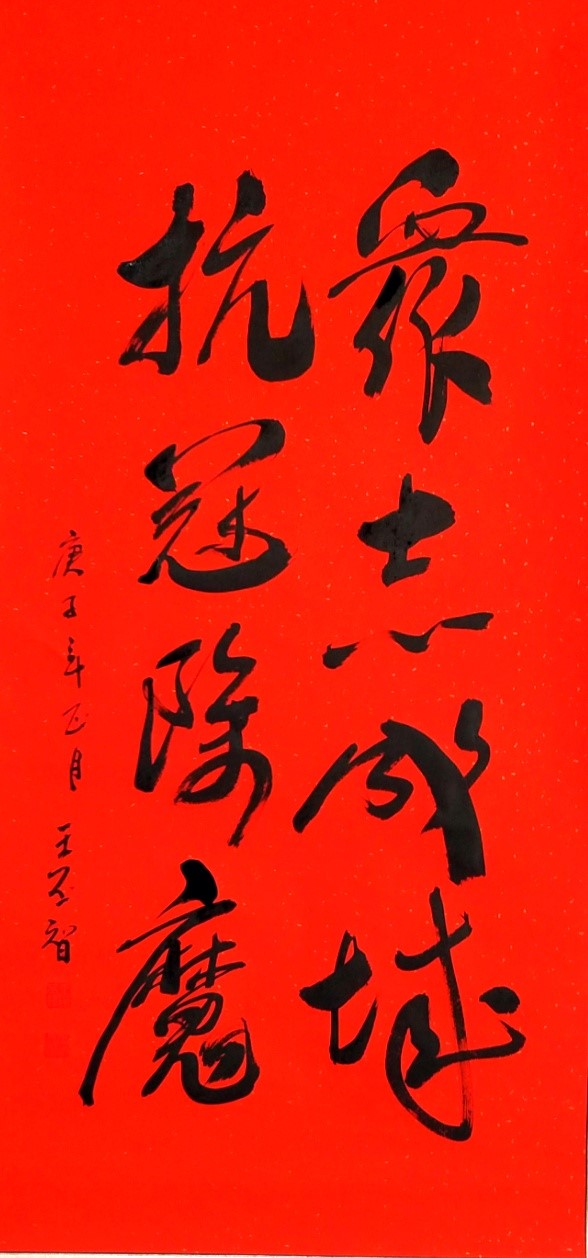 衆志成城
抗冠除魔
庚子年正月 王不智